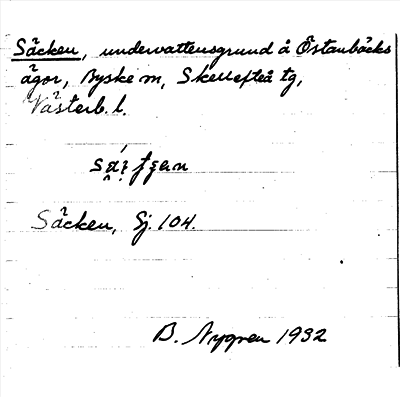 Säcken, undervattensgrund å Östanbäcks
ägor, Byske sn, Skellefteå tg,
Västerb. l.
Säcken, Gj. 104.
B. Nygren 1932